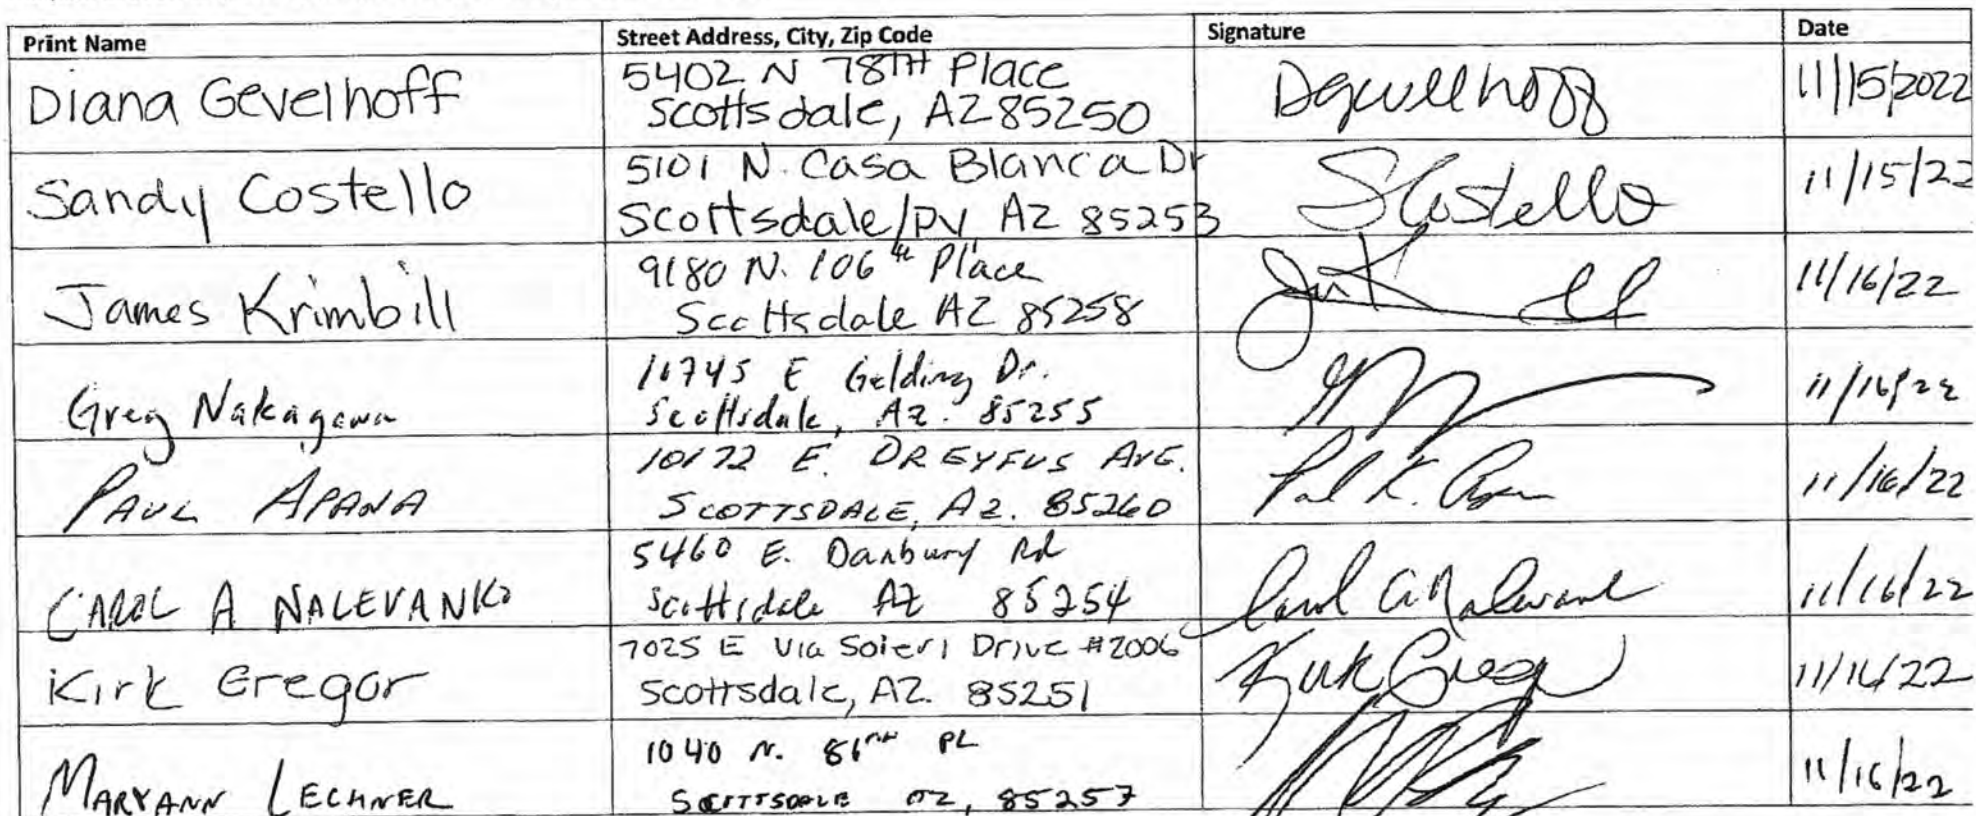 Print Name Street Address, City, Zip Code Signature Date
Diana Gevelhoff 5402 N 78TH Place Scottsdale, AZ 85250 Dgevelhoff 11/15/2022
Sandy Costello 5101 N. Casa Blanca Dr Scottsdale/PV AZ 85253 SCostello 11/15/22
James Krimbill 9180 N. 106th Place Scottsdale AZ 85258 11/16/22
Greg Nakagawa 10745 E Gelding Dr. Scottsdale, Az. 85255 11/16/22
PAUL APANA 10172 E. DREYFUS AVE. SCOTTSDALE, Az. 85260 Paul K. Apana 11/16/22
CAROL A NALEVANKO 5460 E. Danbury Rd Scottsdale AZ 85254 Carol A Nalevanko 11/16/22
Kirk Gregor 7025 E Via Soleri Drive #2006 Scottsdale, AZ. 85251 Kirk Gregor 11/16/22
MARYANN LECHNER 1040 N. 86TH PL SCOTTSDALE AZ, 85257 11/16/22